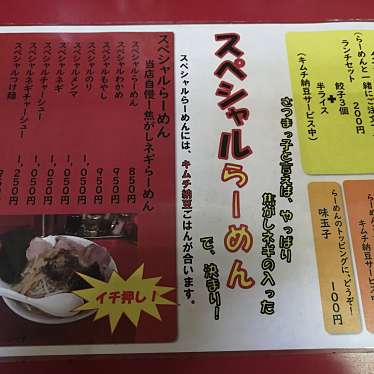 らーめんと一緒にご注文
ランチセット 200円
餃子3個
＋
半ライス
(キムチ納豆サービス中)
キムチ納豆サービス中
らーめんのトッピングに、どうぞ！
味玉子 100円
さつまっ子と言えば、やっぱり
焦がしネギの入った
スペシャルらーめん
で、決まり！
スペシャルらーめんには、キムチ納豆ごはんが合います。
スペシャルらーめん
当店自慢！焦がしネギらーめん
スペシャルらーめん 850円
スペシャルわかめ 950円
スペシャルもやし 950円
スペシャルのり
スペシャルメンマ
スペシャルネギ
スペシャルチャーシュー
スペシャルネギチャーシュー
スペシャルつけ麺
イチ押し！